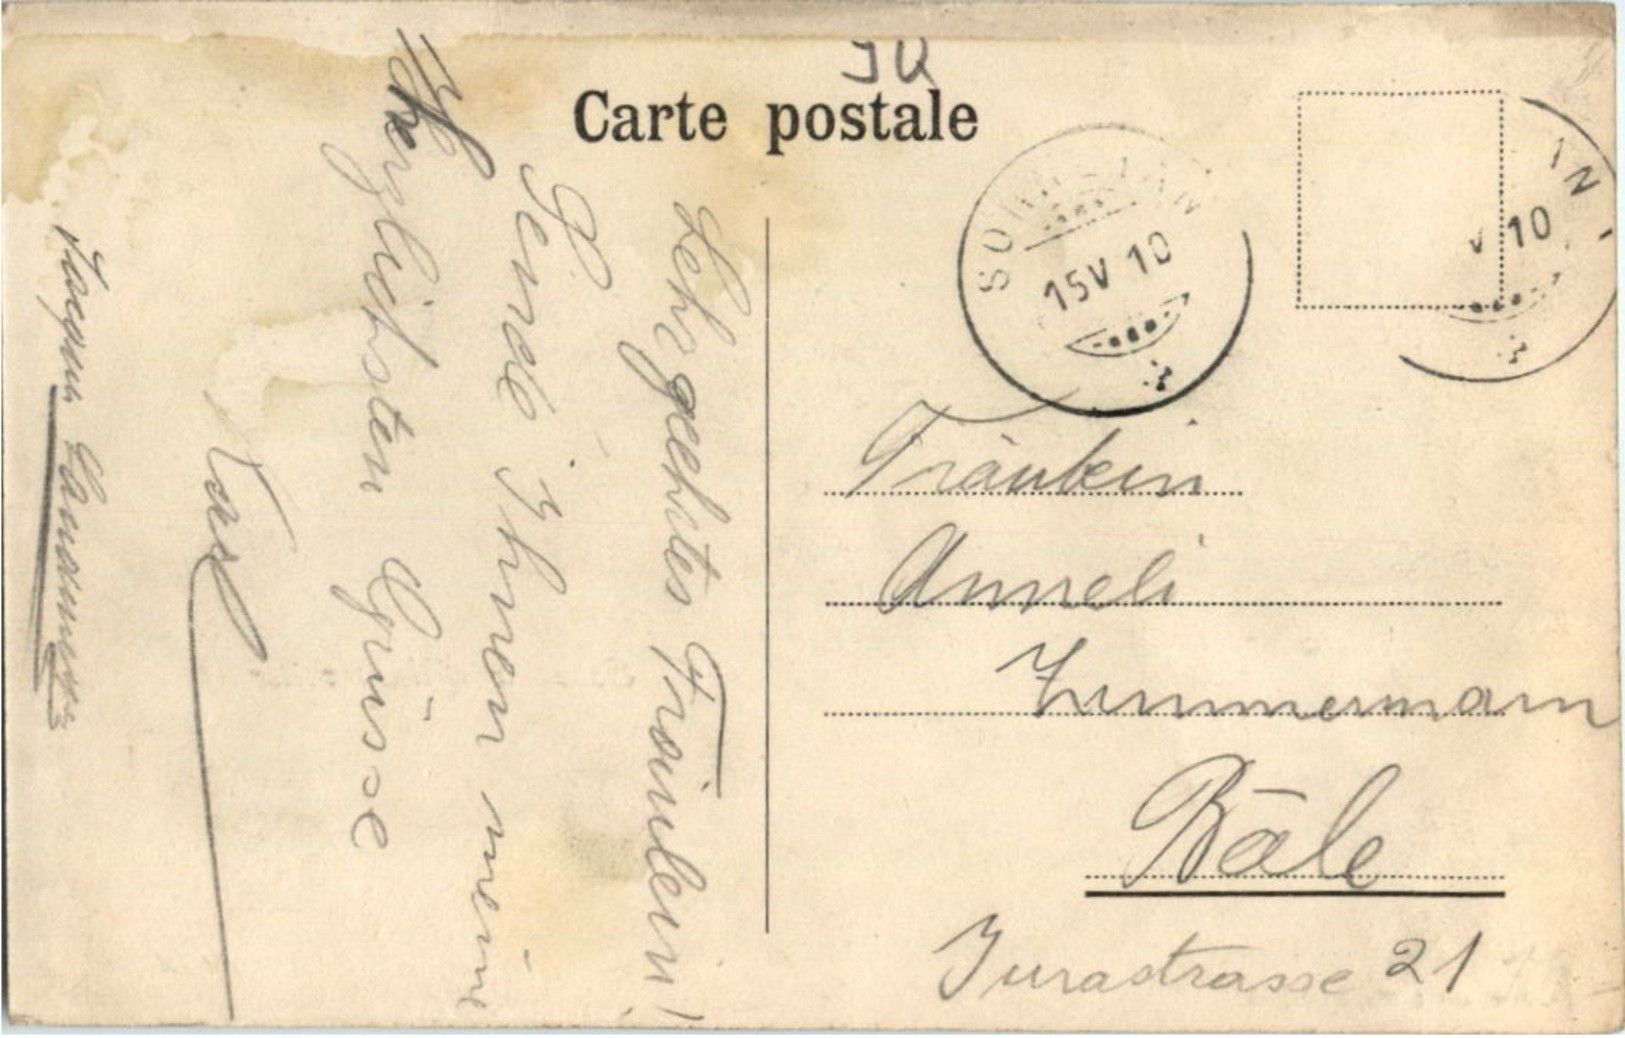 Carte postale
15 V 10
V 10
Sehr geehrtes Fräulein!
Sende Ihnen meine
Herzlichsten Grüsse
Karl
Fräulein
Anneli
Zimmermann
Bâle
Jurastrasse 21